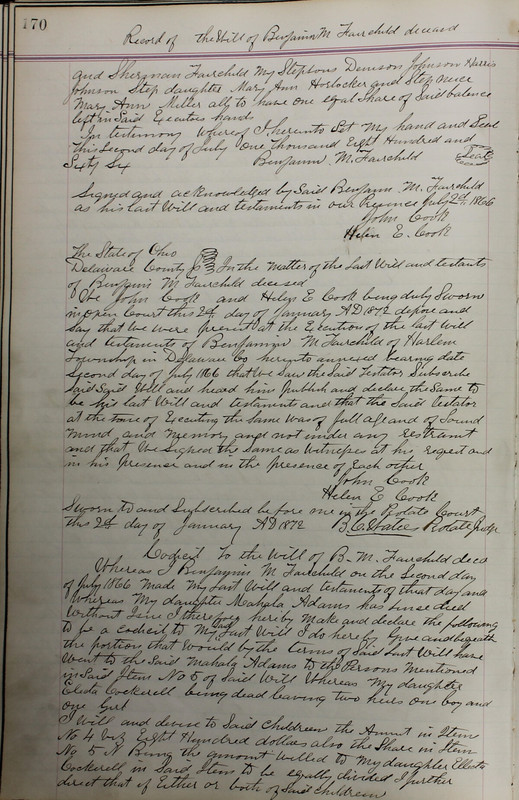 170
Record of the Will of Benjamin M. Fairchild deceased
and Sherman Fairchild My Stepsons Denison Johnson Harris
Johnson Step daughter Mary Ann Horlocker and Step neice
Mary Ann Miller all to have one equal Share of Said balance
left in Said Executies hands
In testimony whereof I hereunto Set My hand and Seal
this Second day of July One thousand Eight Hundred and
Sixty Six Benjamin M. Fairchild Seal
Signed and acknowledged by Said Benjamin M. Fairchild
as his last Will and testaments in our Presence July 2d, 1866
John Cook
Helen E. Cook
The State of Ohio
Delaware County Ss In the Matter of the Last Will and testants
of Benjamin M Fairchild decesed
We John Cook and Helen E Cook being duly Sworn
in Open Court this 2d day of January AD 1872 depose and
Say that We were present at the Execution of the last Will
and testaments of Benjamin M Fairchild of Harlem
Township in Delaware Co hereunto annexed bearing date
Second day of July 1866 that We Saw the Said Testator Subscribe
Said Will and heard him publish and declare the Same to
be his last Will and testament and that the Said testator
at the time of Executing the Same was of full age and of Sound
Mind and Memory and not under any restraint
and that We Signed the Same as Witneses at his request and
in his Presence and in the presence of Each other
John Cook
Helen E Cook
Sworn to and Subscribed before me in the Probate Court
this 2d day of January AD 1872 B. C. Waters Probate Judge
Codicil To the Will of B. M. Fairchild decd
Whereas I Benjamin M Fairchild on the Second day
of July 1866 Made My last Will and testaments of that day and
Whereas My daughter Mahala Adams has Since died
Without Isue I therefore hereby Make and declare the following
to be a Codicil to My Said last Will I do hereby Give and bequeath
the portion that Would by the terms of Said Last Will have
Went to the Said Mahala Adams to the Persons Mentioned
in Said Item No 5 of Said Will Whereas My daughter
Cockerell being dead leaving two heirs One boy and
One Girl
I Will and devise to Said Children the Amount in Item
No 4 viz Eight Hundred dollars also the Share in Item
No 5 Being the amount Willed to My daughter
Cockerell in Said Item to be equally divided I further
direct that if Either or both of Said Children